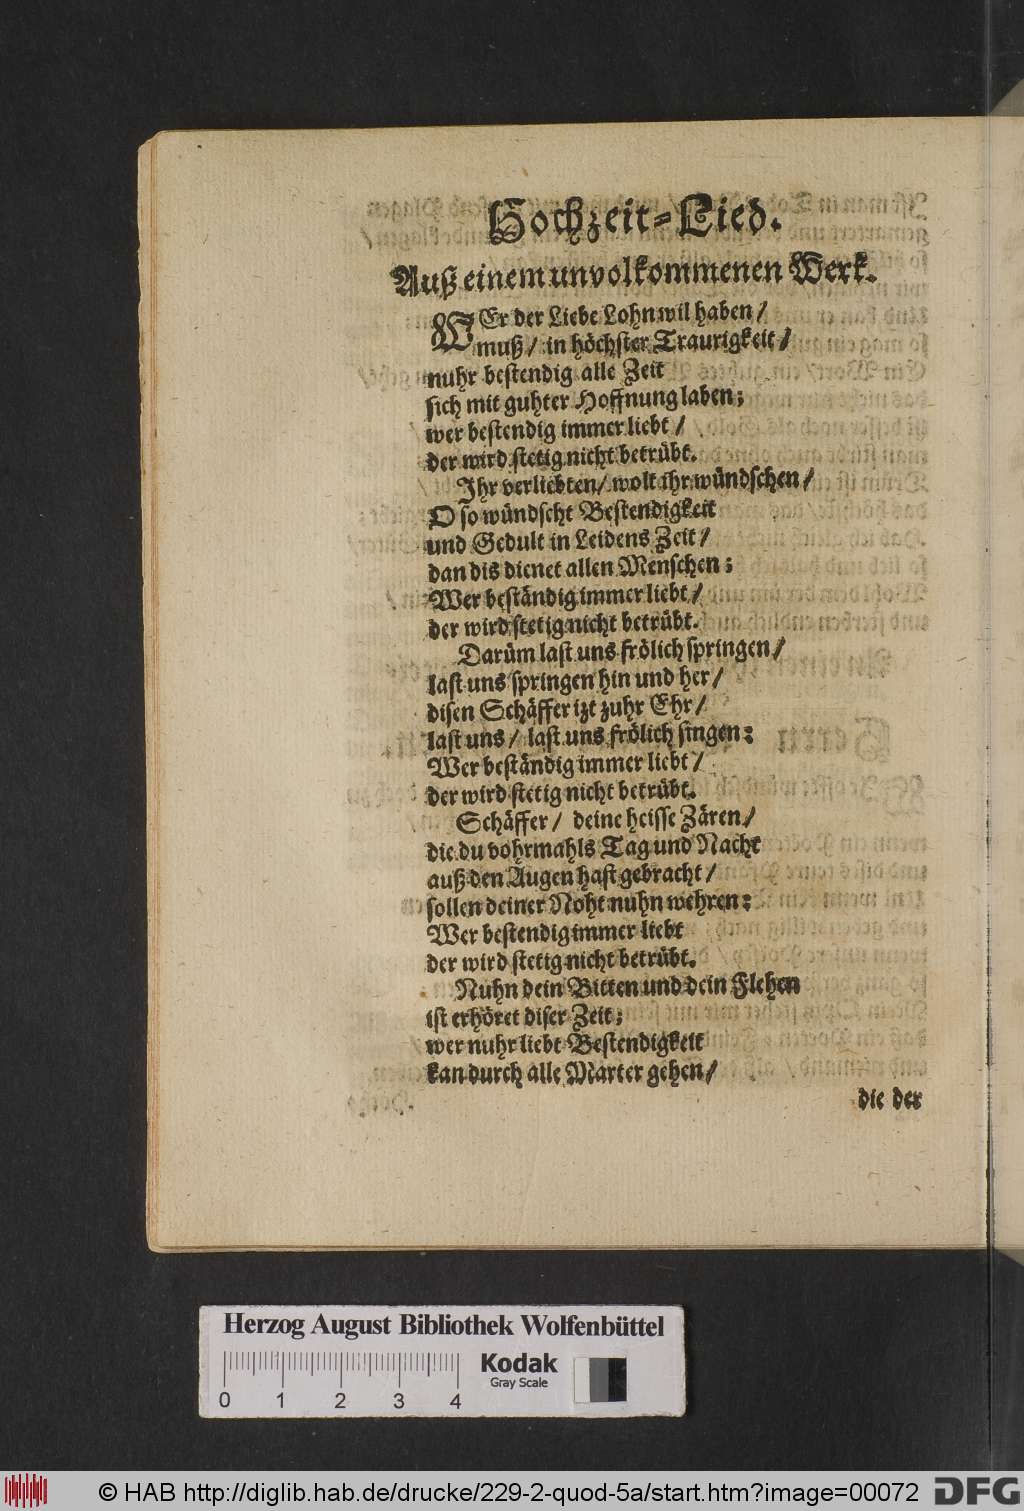 Hochzeit-Lied.
Auß einem unvolkommenen Werk.
WEr der Liebe Lohn wil haben /
muß / in höchster Traurigkeit /
nuhr bestendig alle Zeit
sich mit guhter Hoffnung laben;
wer bestendig immer liebt /
der wird stetig nicht betrübt.
Ihr verliebten / wolt ihr wündschen /
O so wündscht Bestendigkeit
und Gedult in Leidens Zeit /
dan dis dienet allen Menschen:
Wer beständig immer liebt /
der wird stetig nicht betrübt.
Darüm last uns frölich springen /
last uns springen hin und her /
disen Schäffer izt zuhr Ehr /
last uns / last uns frölich singen:
Wer beständig immer liebt /
der wird stetig nicht betrübt.
Schäffer / deine heisse Zären /
die du vohrmahls Tag und Nacht
auß den Augen hast gebracht /
sollen deiner Noht nuhn wehren:
Wer bestendig immer liebt
der wird stetig nicht betrübt.
Nuhn dein Bitten und dein Flehen
ist erhöret diser Zeit;
wer nuhr liebt Bestendigkeit
kan durch alle Marter gehen /
die der
Herzog August Bibliothek Wolfenbüttel
0 1 2 3 4
Kodak
Gray Scale
© HAB http://diglib.hab.de/drucke/229-2-quod-5a/start.htm?image=00072
DFG